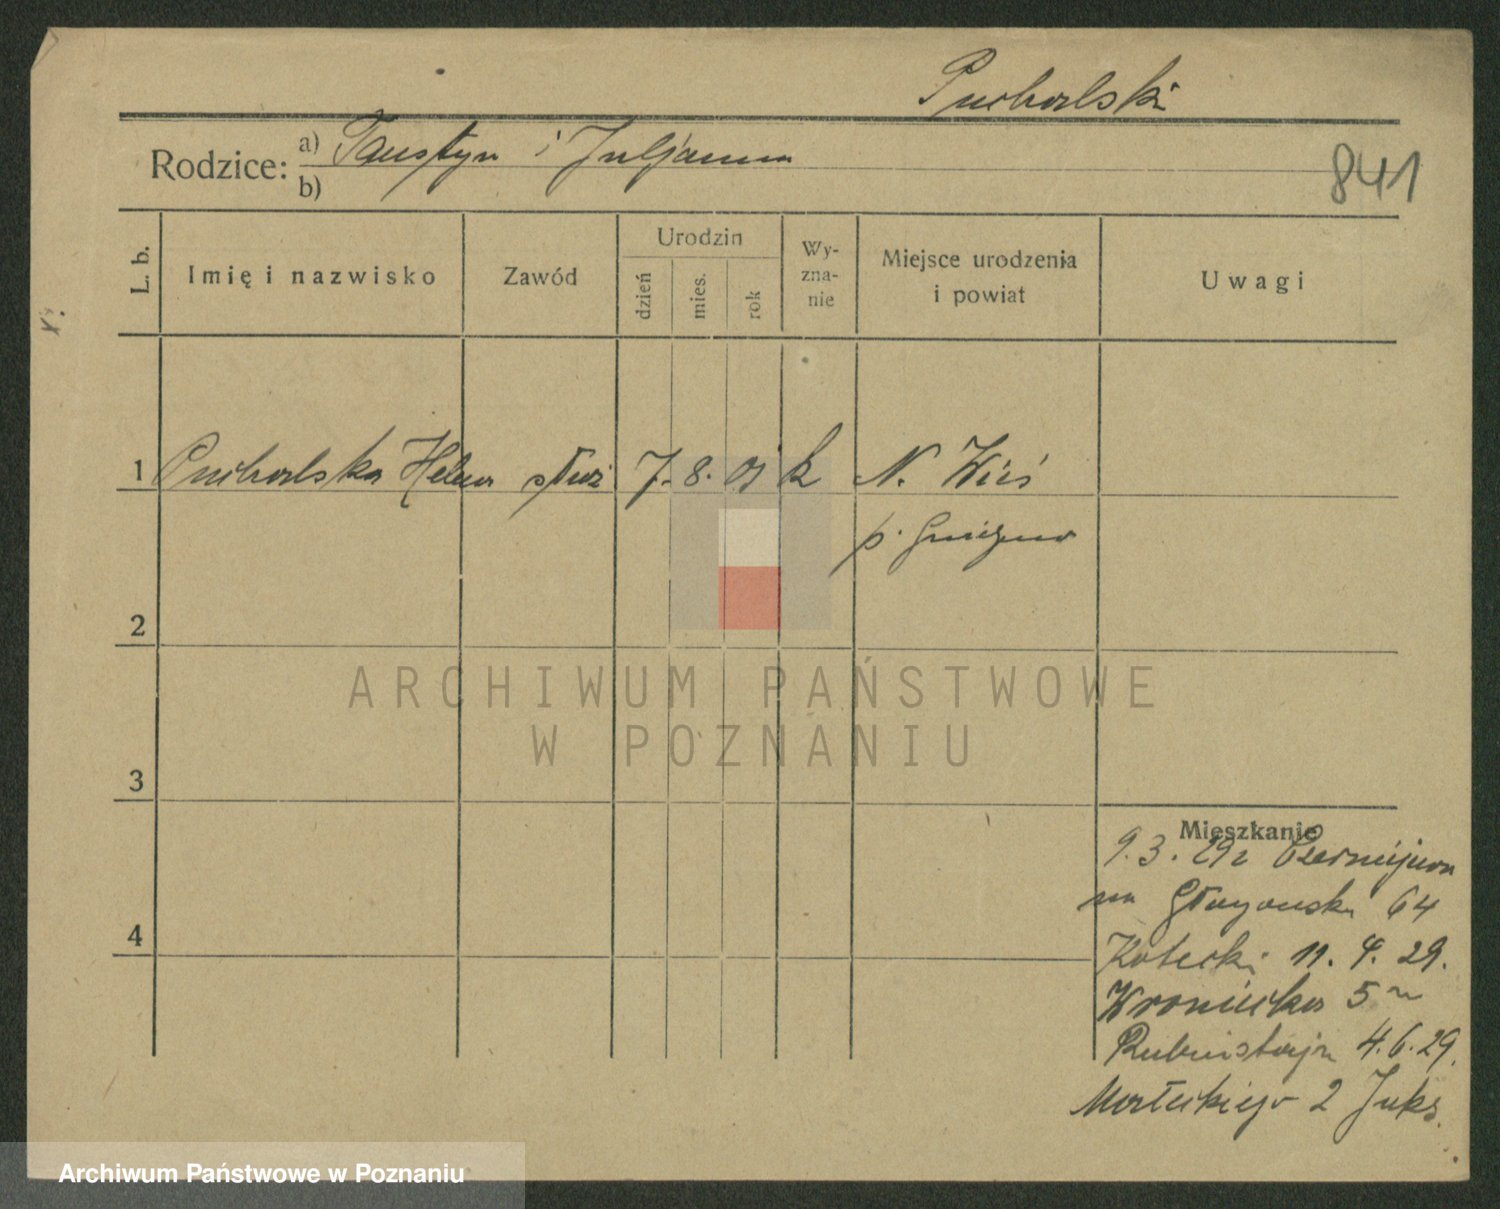 Puchalski
Rodzice: a) Faustyn i Juljanna
b)
841
L. b.
Imię i nazwisko
Zawód
Urodzin
dzień
mies.
rok
Wy-
zna-
nie
Miejsce urodzenia
i powiat
Uwagi
1 Puchalska Helena służ 7. 8. 01 k N. Wieś
p. Gniezno
2
3
4
Mieszkanie
9.3.29 z Czerniejewa
na Głogowską 64
Kotecki 11.4.29.
Wroniecka 5
Rubinstajn 4.6.29.
Małeckiego 2 Juks.
ARCHIWUM PAŃSTWOWE
W POZNANIU
Archiwum Państwowe w Poznaniu